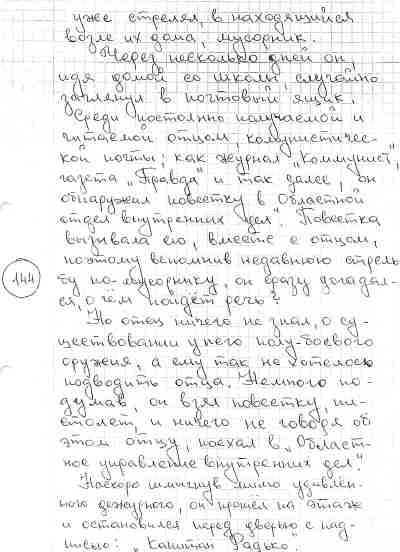 уже стрелял, в находящийся
возле их дома, мусорник.
Через несколько дней он,
идя домой со школы, случайно
заглянул в почтовый ящик.
Среди постоянно получаемой и
читаемой отцом, коммунистичес-
кой почты; как журнал „Коммунист",
газета „Правда" и так далее, он
обнаружил повестку в „Областной
отдел внутренних дел". Повестка
вызывала его, вместе с отцом,
поэтому вспомнив недавнюю стрель-
бу по мусорнику, он сразу догадал-
ся, о чём пойдёт речь?
144
Но отец ничего не знал, о су-
ществовании у него полу-боевого
оружия, а ему так не хотелось
подводить отца. Немного по-
думав, он взял повестку, пи-
столет, и ничего не говоря об
этом отцу, поехал в „Област-
ное управление внутренних дел".
Наскоро шмыгнув мимо удивлён-
ного дежурного, он прошёл на этаж
и остановился перед дверью с над-
писью: „Капитан Радько".